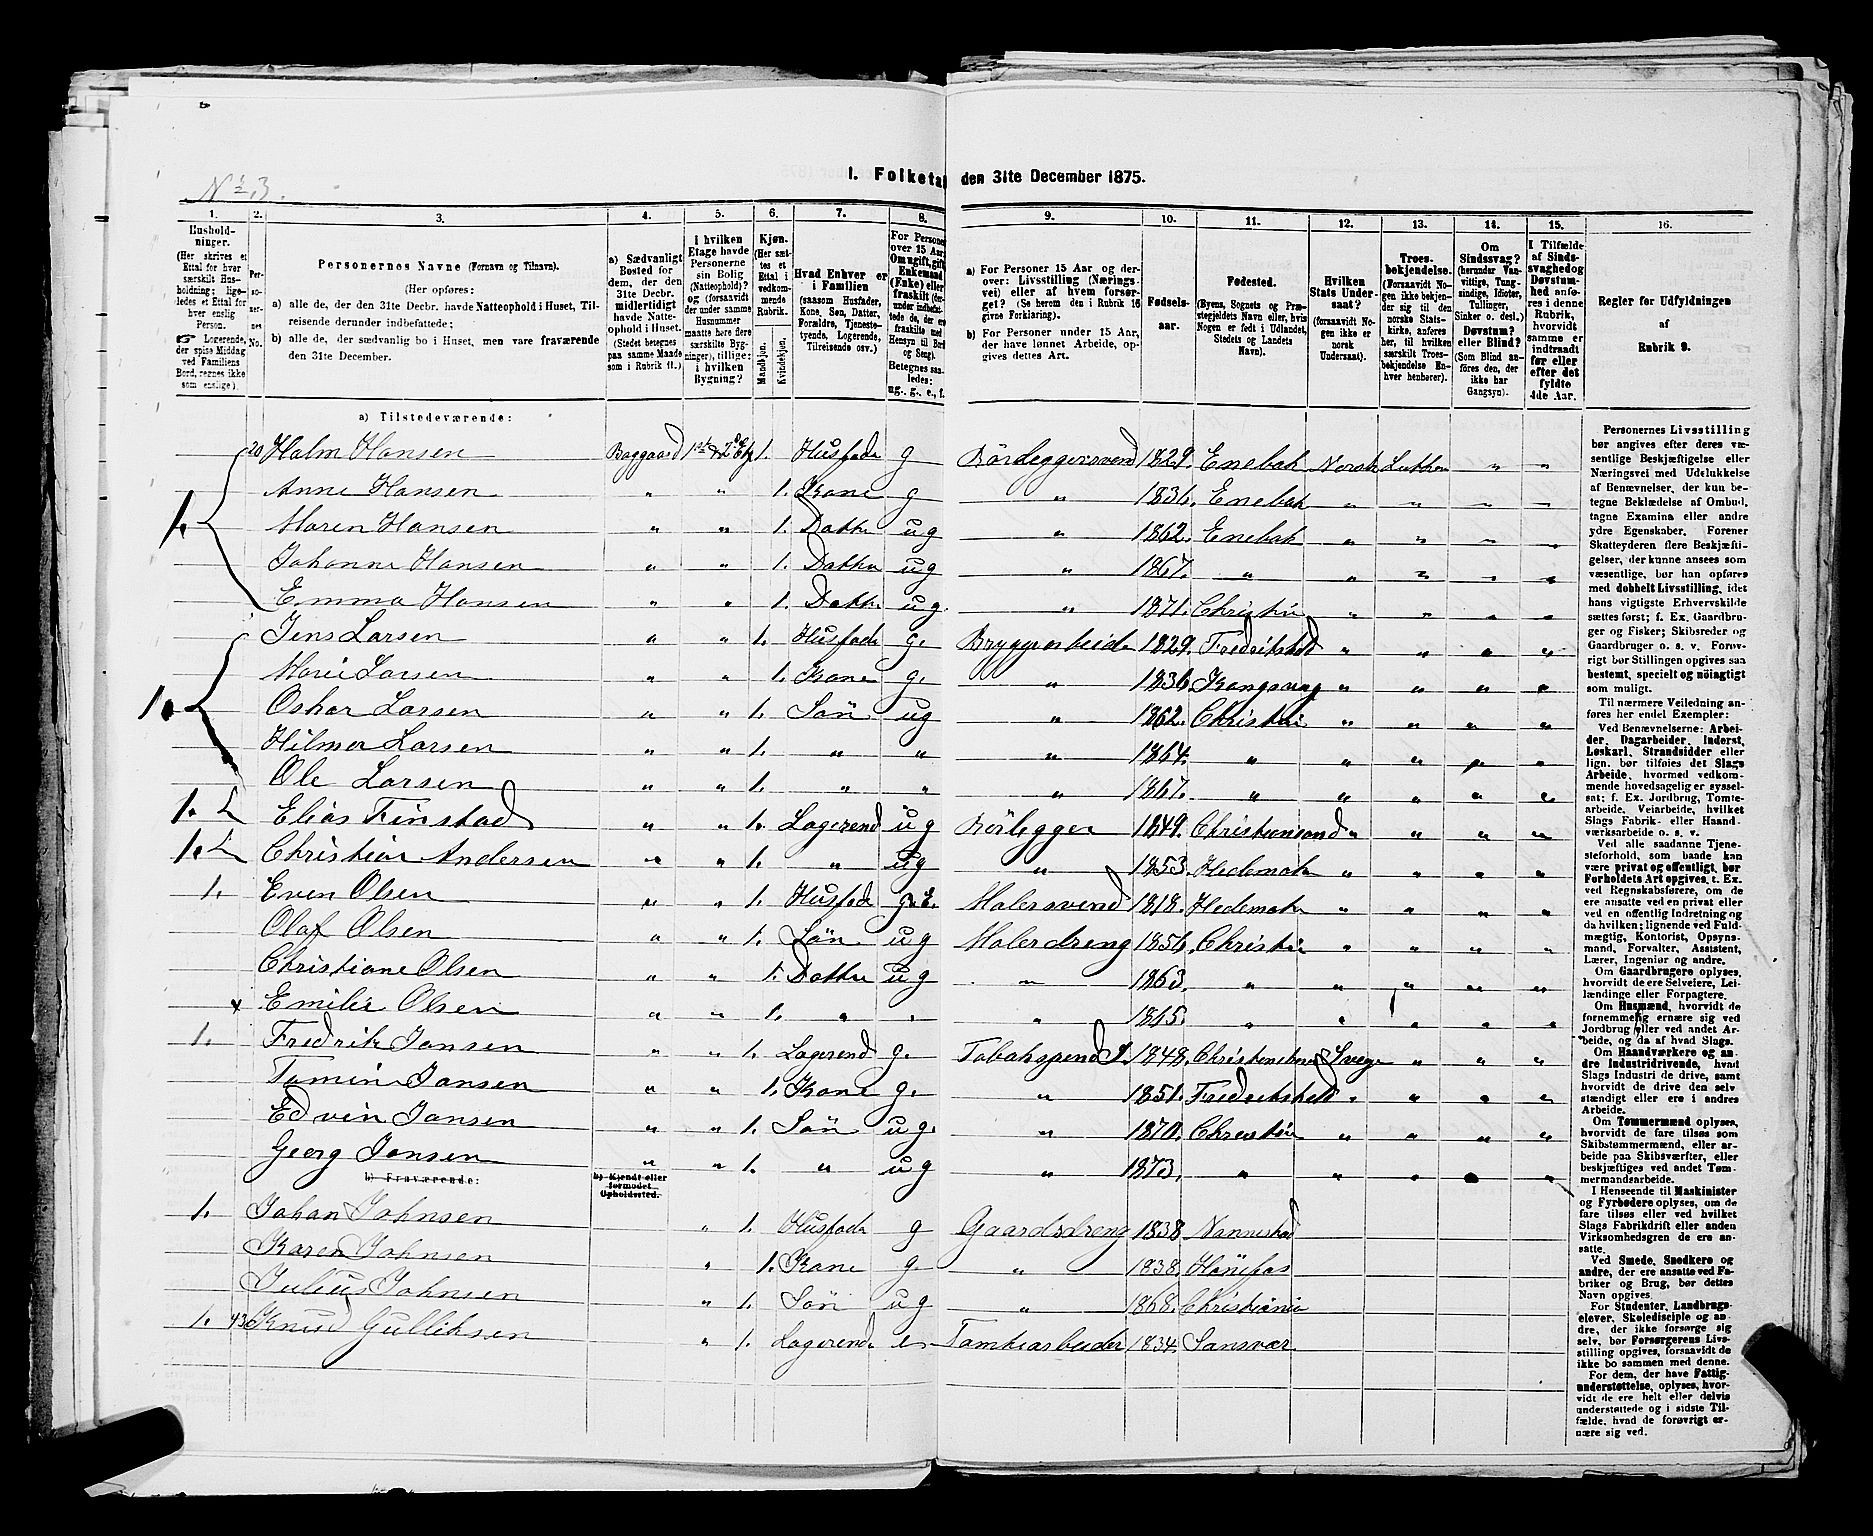 1. Folketal den 31te December 1875.
No 3.
1. 2. 3. 4. 5. 6. 7. 8. 9. 10. 11. 12. 13. 14. 15. 16.
Husholdninger.
(Her skrives et Ettal for hver særskilt Husholdning; ligeledes et Ettal for hver enslig Person.
☞ Logerende, der spise Middag ved Familiens Bord, regnes ikke som enslige).
Personernes No.
Personernes Navne (Fornavn og Tilnavn).
(Her opføres:
a) alle de, der den 31te Decbr. havde Natteophold i Huset, Tilreisende derunder indbefattede;
b) alle de, der sædvanlig bo i Huset, men vare fraværende den 31te December.
a) Sædvanligt Bosted for dem, der den 31te Decbr. midlertidigt havde Natteophold i Huset. (Stedet betegnes paa samme Maade som i Rubrik 11.)
I hvilken Etage havde Personerne sin Bolig (Natteophold)? og (forsaavidt der under samme Husnummer maatte høre flere særskilte Bygninger), tillige: i hvilken Bygning?
Kjøn. (Her sættes et Ettal i vedkommende Rubrik. Mandkjøn. Kvindekjøn.
Hvad Enhver er i Familien (saasom Husfader, Kone, Søn, Datter, Forældre, Tjenestetyende, Logerende, Tilreisende osv.)
For Personer over 15 Aar: Om ugift, gift, Enkemand (Enke) eller fraskilt
Betegnes saaledes: ug., g., e., f.
a) For Personer 15 Aar og derover: Livsstilling (Næringsvei) eller af hvem forsørget? (Se herom den i Rubrik 16 givne Forklaring).
b) For Personer under 15 Aar, der have lønnet Arbeide, opgives dettes Art.
Fødselsaar.
Fødested. (Byens, Sognets og Præstegjeldets Navn eller, hvis Nogen er født i Udlandet, Stedets og Landets Navn).
Hvilken Stats Undersaat? (forsaavidt Nogen ikke er norsk Undersaat).
Troesbekjendelse. (Forsaavidt Nogen ikke bekjender sig til den norske Statskirke, anføres her, til hvilken særskilt Troesbekjendelse Enhver henhører).
Om Sindssvag? (herunder Vanvittige, Tungsindige, Idioter, Tullinger, Sinker o. desl.) Døvstum? eller Blind? (Som Blind anføres den, der ikke har Gangsyn).
I Tilfælde af Sindssvaghed og Døvstumhed anføres i denne Rubrik, hvorvidt samme er indtraadt før eller efter det fyldte 4de Aar.
Regler for Udfyldningen af Rubrik 9.
a) Tilstedeværende:
20 Halm Hansen Baggaard 1. Husfade g 1829. Enebak Norsk Luther " "
Anne Hansen " " 1. Kone g " 1836. Enebak " " " "
1. Maren Hansen " " 1. Datter ug " 1862. Enebak " " " "
Johanne Hansen " " 1. Datter ug " 1867. " " " " "
Emma Hansen " " 1. Datter ug. " 1871. Christia " " " "
Jens Larsen " " 1. Husfade g. Bryggearbeide 1829. Fredrikshald " " " "
Marie Larsen " " 1. Kone g. " 1836. Kongsving " " " "
1. Oskar Larsen " " 1. Sön ug " 1862. Christia " " " "
Hilmar Larsen " " 1. " " " 1864. " " " " "
Ole Larsen " " 1. " " " 1867. " " " " "
1. L Elias Finstad " " 1. Logerend ug Rörlegger 1849. Christiansand " " " "
1. L Christian Andersen " " 1. " ug " 1853. Hedemark " " " "
1. Even Olsen " " 1. Husfade g. e. Malersvend 1818. Hedemark " " " "
Olaf Olsen " " 1. Sön ug Malerdreng 1856. Christia " " " "
Christiane Olsen " " 1. Datter ug " 1863. " " " " "
x Emilie Olsen " " 1. " " " 1865. " " " " "
1. Fredrik Jansen " " 1. Logerend g. 1848. Sverge " " "
Jansen " " 1. Kone g. " 1851. Fredrikshald " " " "
Edvin Jansen " " 1. Sön ug. " 1870. Christia " " " "
Georg Jansen " " 1. " ug " 1873. " " " " "
b) Fraværende: b) Kjendt eller formodet Opholdssted.
1. Johan Johnsen " 1. Husfade g Gaardsdreng 1838 Nannestad
Karen Johnsen " 1. Kone g. " 1838. Hönefos
Julius Johnsen " 1. Sön ug " 1868. Christiania
1. 43 Knud Gulliksen " 1. Logerende e Tomtearbeider 1834. Sansvær
Personernes Livsstilling bør angives efter deres væsentlige Beskjæftigelse eller Næringsvei med Udelukkelse af Benævnelser, der kun betegne Beklædelse af Ombud, tagne Examina eller andre ydre Egenskaber. Forener Skatteyderen flere Beskjæftigelser, der kunne ansees som væsentlige, bør han opføres med dobbelt Livsstilling, idet hans vigtigste Erhvervskilde sættes først; f. Ex. Gaardbruger og Fisker; Skibsreder og Gaardbruger o. s. v. Forøvrigt bør Stillingen opgives saa bestemt, specielt og nöiagtigt som muligt.
Til nærmere Veiledning anføres her endel Exempler:
Ved Benævnelserne: Arbeider, Dagarbeider, Inderst, Løskarl, Strandsidder eller lign. bør tilføies det Slags Arbeide, hvormed vedkommende hovedsagelig er sysselsat; f. Ex. Jordbrug, Tomtearbeide, Veiarbeide, hvilket Slags Fabrik- eller Haandværksarbeide o. s. v.
Ved alle saadanne Tjenesteforhold, som baade kan være privat og offentligt, bør Forholdets Art opgives, t. Ex. ved Regnskabsførere, om de ere ansatte ved en privat eller ved en offentlig Indretning og da hvilken; lignende ved Fuldmægtig, Kontorist, Opsynsmand, Forvalter, Assistent, Lærer, Ingeniør og andre.
Om Gaardbrugere oplyses, hvorvidt de ere Selveiere, Leilændinge eller Forpagtere.
Om Husmænd, hvorvidt de fornemmelig ernære sig ved Jordbrug eller ved andet Arbeide, og da af hvad Slags.
Om Haandværkere og andre Industridrivende, hvad Slags Industri de drive, samt hvorvidt de drive den selvstændigt eller ere i andres Arbeide.
Om Tømmermænd oplyses, hvorvidt de fare tilsøs som Skibstømmermænd, eller arbeide paa Skibsværfter, eller beskjæftiges ved andet Tømmermandsarbeide.
I Henseende til Maskinister og Fyrbødere oplyses, om de fare tilsøs eller ved hvilket Slags Fabrikdrift eller anden Virksomhedsgren de ere ansatte.
Ved Smede, Snedkere og andre, der ere ansatte ved Fabriker og Brug, bør dettes Navn opgives.
For Studenter, Landbrugselever, Skoledisciple og andre, der ikke forsørge sig selv, bør Forsørgerens Livsstilling opgives, forsaavidt de ikke bo sammen med denne.
For dem, der have Fattigunderstøttelse, oplyses, hvorvidt de ere helt eller delvis understøttede og i sidste Tilfælde, hvad de forøvrigt ernære sig ved.